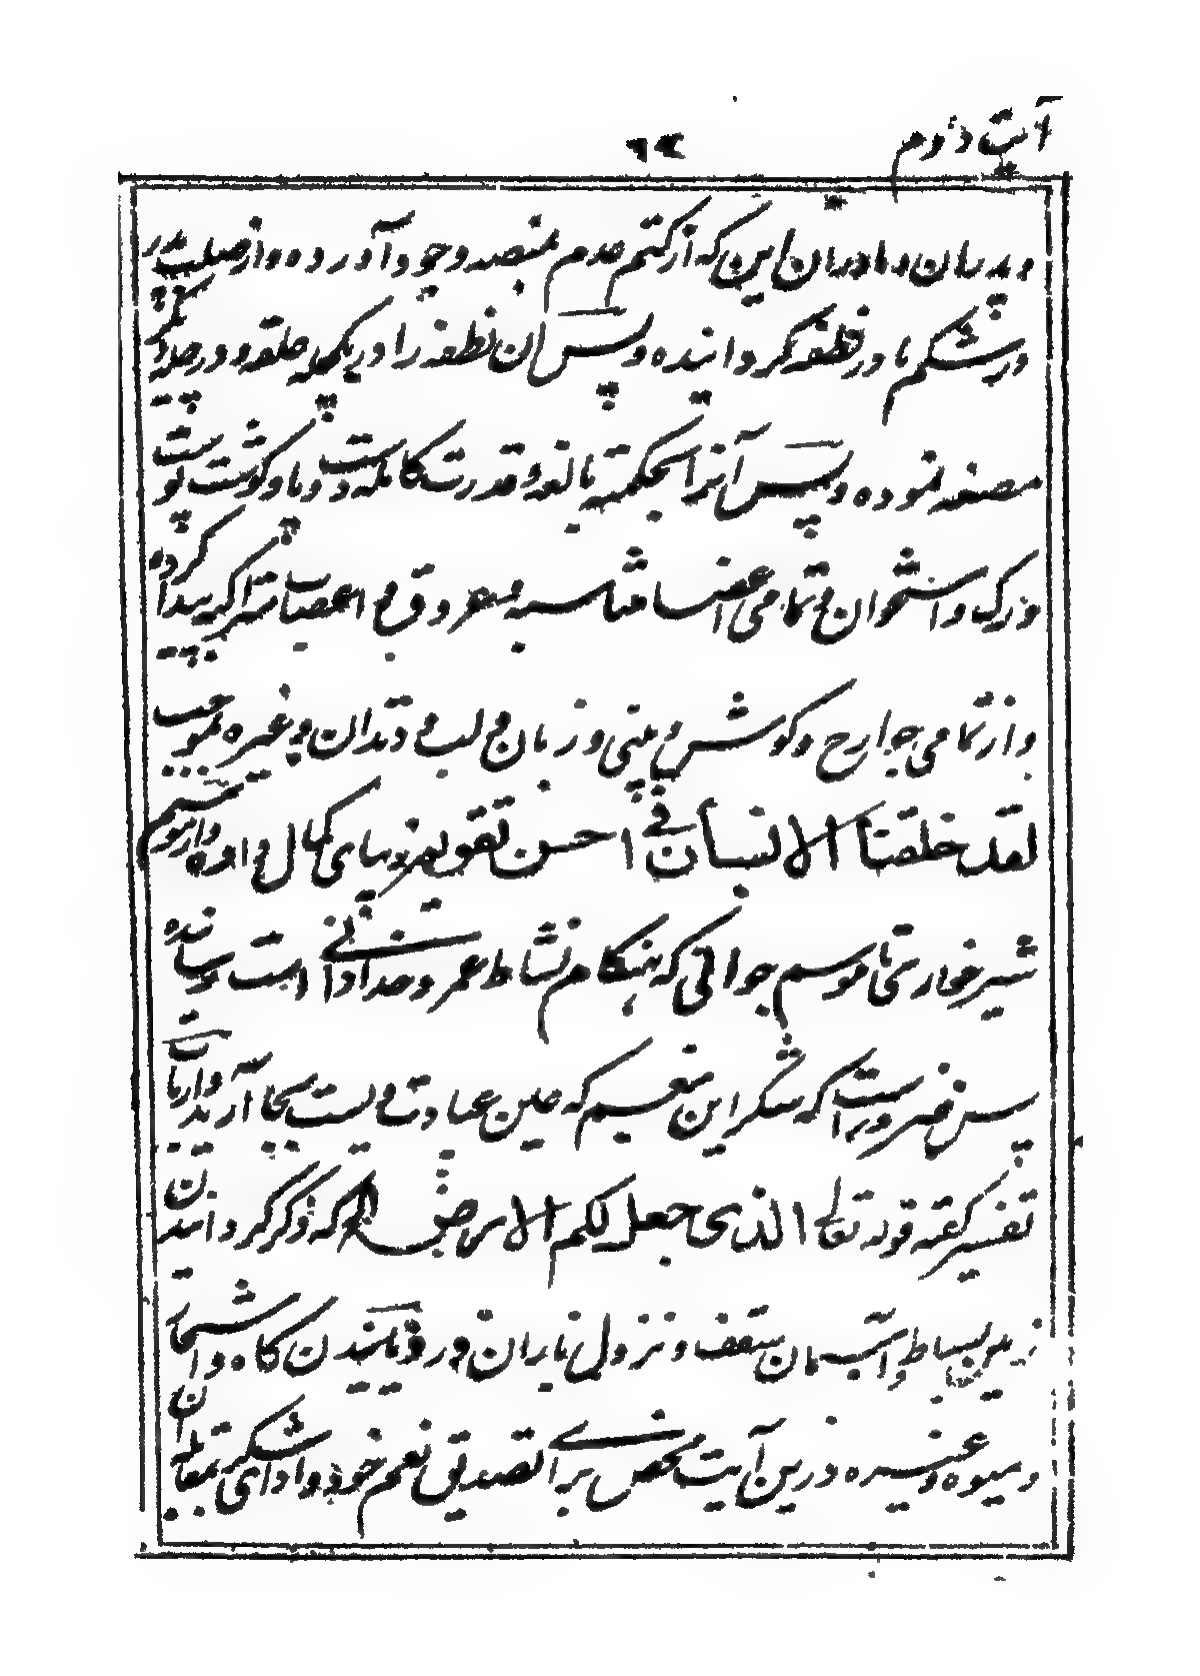 آیت دوم ٦٢
و پدران و مادران این که از کتم عدم بمنصه وجود آورده و از صلب پدر
در شکم مادر نطفه گردانیده و پس آن نطفه را در یکچله علقه و در چله دیگر
مضغه نموده و پس آنرا بحکمته بالغه و قدرت کامله دست و پا و گوشت پوست
و رگ و استخوان و تمامی اعضا مناسبه و عروق و اعصاب متراکبه پیدا کرده
و از تمامی جوارح و گوش و بینی و زبان و لب و دندان و غیره بموجب
لقد خلقنا الانسان فی احسن تقویم زیبای کمال داده و از موسم
شیرخواری تا موسم جوانی که هنگام نشاط عمر و حدادانی است رسانده
پس ضرور است که شکر این نعیم که عین عبادت ویست بجا آرید و ارباب
تفسیر گفته قوله تعالی الذی جعل لکم الارض الخ که ذکر گردانیدن
زمین بساط و آسمان سقف و نزول باران و رویانیدن کاه و اشجار
و میوه و غیره درین آیت محض برای تصدیق نعم خود و ادای شکر بمقابله آن